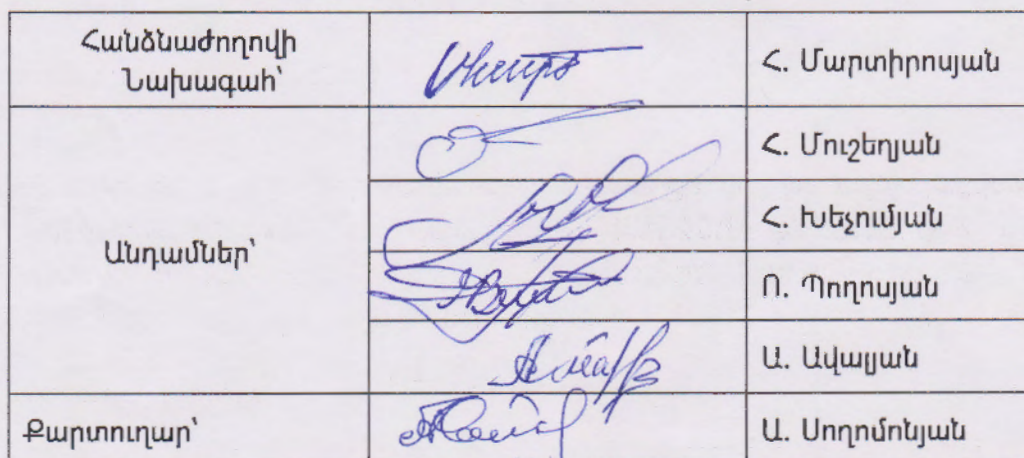 Հանձնաժողովի
Նախագահ՝
Հ. Մարտիրոսյան
Հ. Մուշեղյան
Հ. Խեչումյան
Անդամներ՝
Ռ. Պողոսյան
Ա. Ավալյան
Քարտուղար՝
Ա. Սողոմոնյան